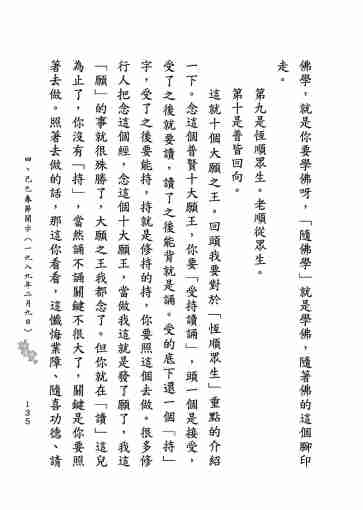 佛學，就是你要學佛呀，「隨佛學」就是學佛，隨著佛的這個腳印
走。
第九是恆順眾生。老順從眾生。
第十是普皆回向。
這就十個大願之王，回頭我要對於「恆順眾生」重點的介紹
一下。念這個普賢十大願王，你要「受持讀誦」，頭一個是接受，
受了之後就要讀，讀了之後能背就是誦。受的底下還一個「持」
字，受了之後要能持，持就是修持的持，你要照這個去做。很多修
行人把念這個經，念這個十大願王，當做我這就是發了願了，我這
「願」的事就很殊勝了，大願之王我都念了。但你就在「讀」這兒
為止了，你沒有「持」，當然誦不誦關鍵不很大了，關鍵是你要照
著去做。照著去做的話，那這你看看，這懺悔業障、隨喜功德、請
四、己巳春節開示（一九八九年二月九日）
135